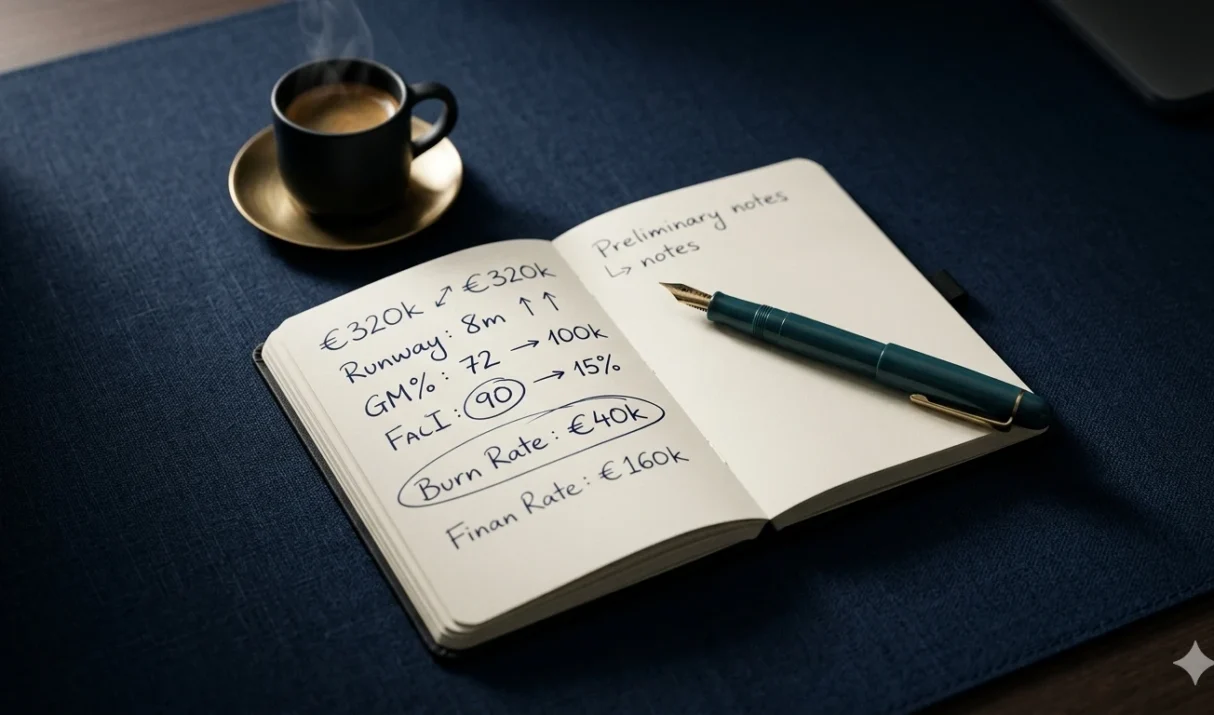 €320k ↙↗ €320k
Runway: 8m ↑ ↑
GM%: 72 → 100k
FACI: 90 → 15%
Burn Rate: €40k
Finan Rate: €160k
Preliminary notes
↳ notes